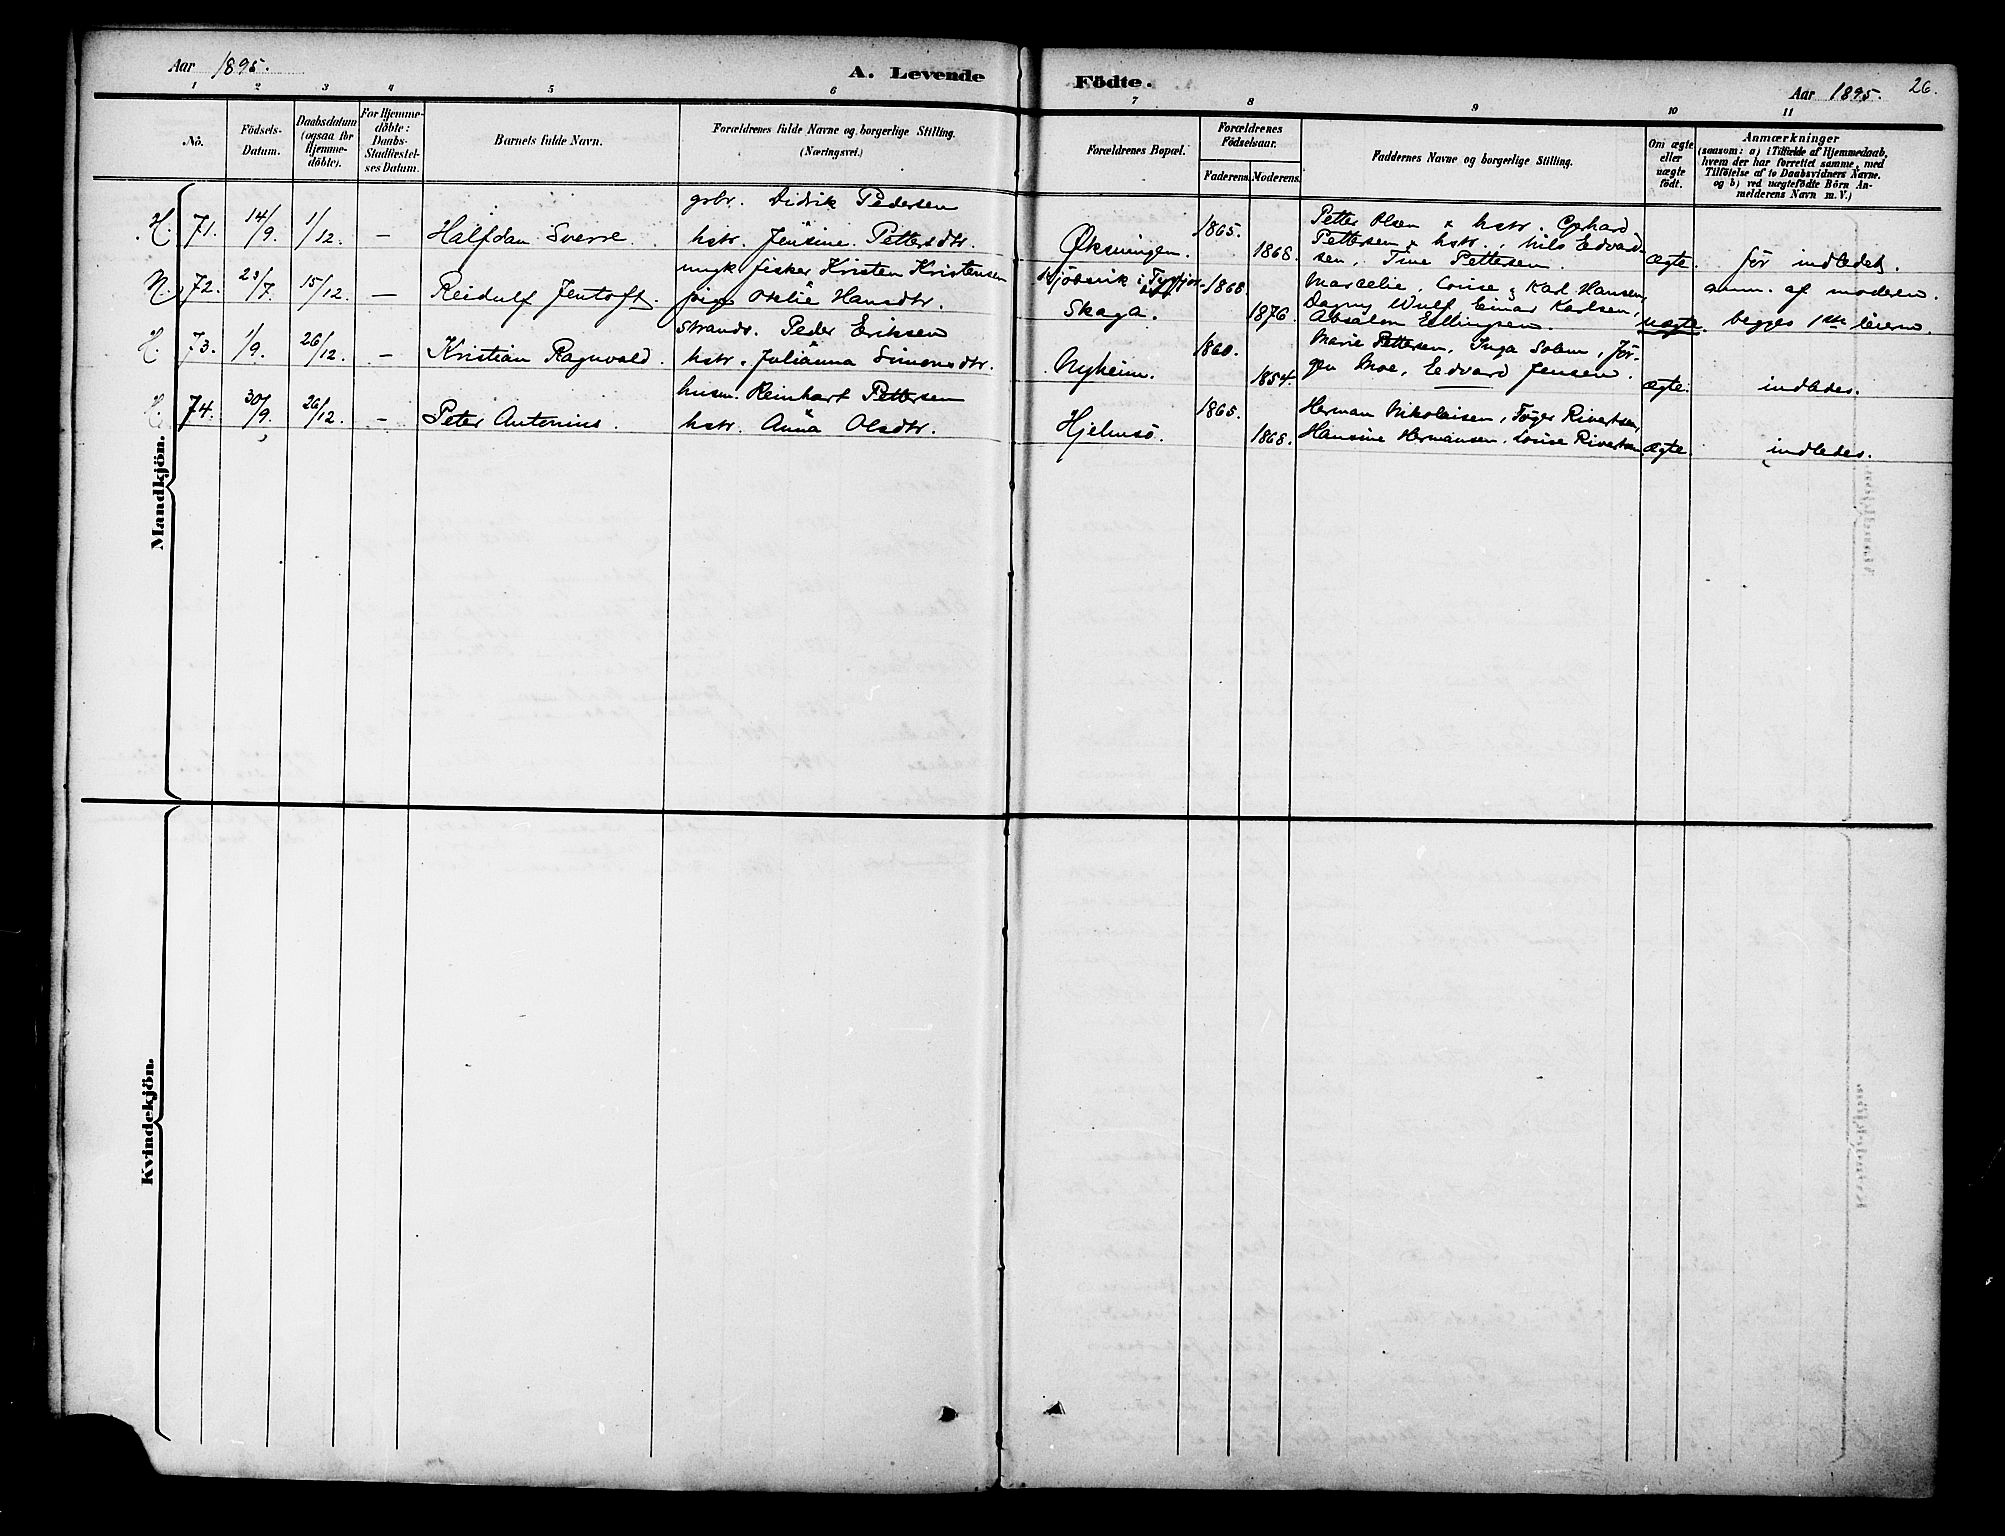 Aar 1895.
A. Levende Födte.
Aar 1895. 26.
1 2 3 4 5 6 7 8 9 10 11
No.
Födsels-Datum.
Daabsdatum (ogsaa for Hjemme-döbte).
For Hjemme-döbte: Daabs-Stadfæstel-ses Datum.
Barnets fulde Navn.
Forældrenes fulde Navne og borgerlige Stilling.
(Næringsvei.)
Forældrenes Bopæl.
Forældrenes Födselsaar.
Faderens. Moderens.
Faddernes Navne og borgerlige Stilling.
Om ægte eller uægte födt.
Anmærkninger
(saasom: a) i Tilfælde af Hjemmedaab,
hvem der har forrettet samme, med
Tilföielse af to Daabsvidners Navne.
og b) ved uægtefödte Börn An-
melderens Navn m. V.)
Mandkjön.
gbr. Didrik Pedersen
H. 71. 14/9. 1/12. — Halfdan Sverre. hstr. Jensine Pettersdtr. Øksningen. 1865. 1868.
Petter Olsen & hstr. Gerhard
Pettersen & hstr., Nils Edvard-
sen, Tine Pettersen. ægte. för indledet.
ungk. fisker Kristen Kristensen
N. 72. 23/7. 15/12. — Reidulf Jentoft. pige Otelie Hansdtr. Skaga. 1868. 1876.
Marcelie, Louise & Karl Hansen,
Dagny Wulf, Einar Karlsen,
Absalon Ellingsen. uægte. anm. af moderen.
begges 1ste leierm.
Strands. Peder Eriksen
H. 73. 1/9. 26/12. — Kristian Ragnvald. hstr. Julianna Simonsdtr. Nyheim. 1860. 1854.
Marie Pettersen, Inga Solem, Jör-
gen Moe, Edvard Jensen. ægte. indledes.
husm. Reinhart Pettersen
H. 74. 30/9. 26/12. — Peter Antonius. hstr. Anna Olsdtr. Hjelmsö. 1865. 1868.
Herman Nikolaisen, Töger Rivertsen,
Hansine Hermansen, Louise Rivertsen ægte. indledes.
Kvindekjön.